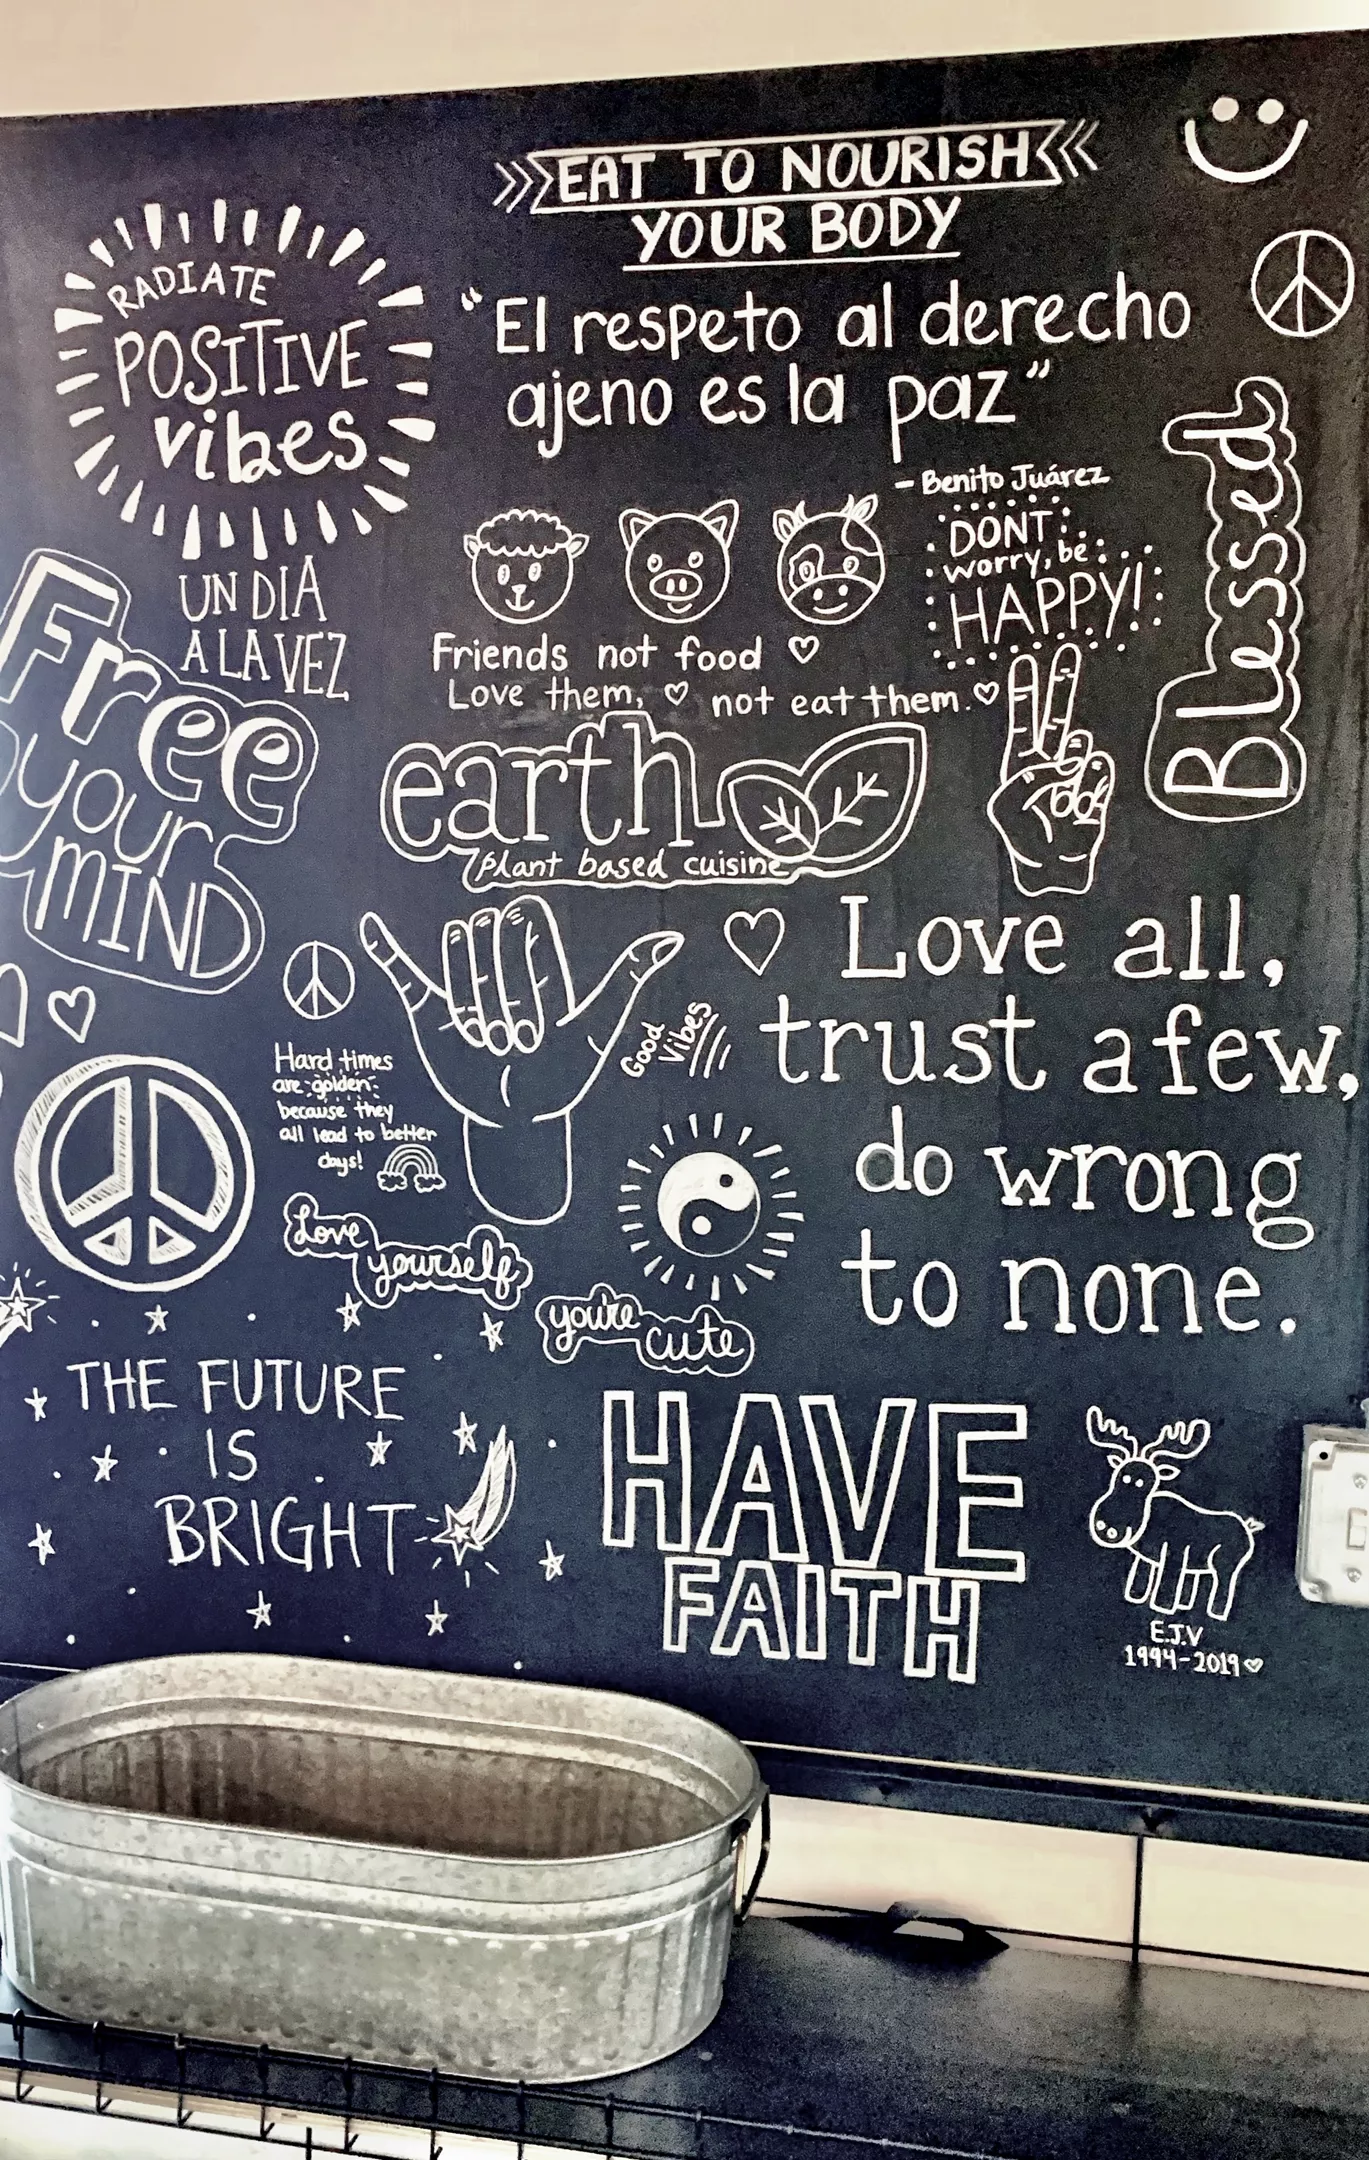 EAT TO NOURISH
YOUR BODY
RADIATE
POSITIVE
vibes
"El respeto al derecho
ajeno es la paz"
- Benito Juárez
UN DIA
A LA VEZ
DONT
worry, be
HAPPY!
Blessed
Friends not food
Love them, not eat them.
Free
your
MIND
earth
plant based cuisine
Love all,
trust a few,
do wrong
to none.
Good
Vibes
Hard times
are golden
because they
all lead to better
days!
Love
yourself
you're
cute
THE FUTURE
IS
BRIGHT
HAVE
FAITH
E.J.V
1994-2019